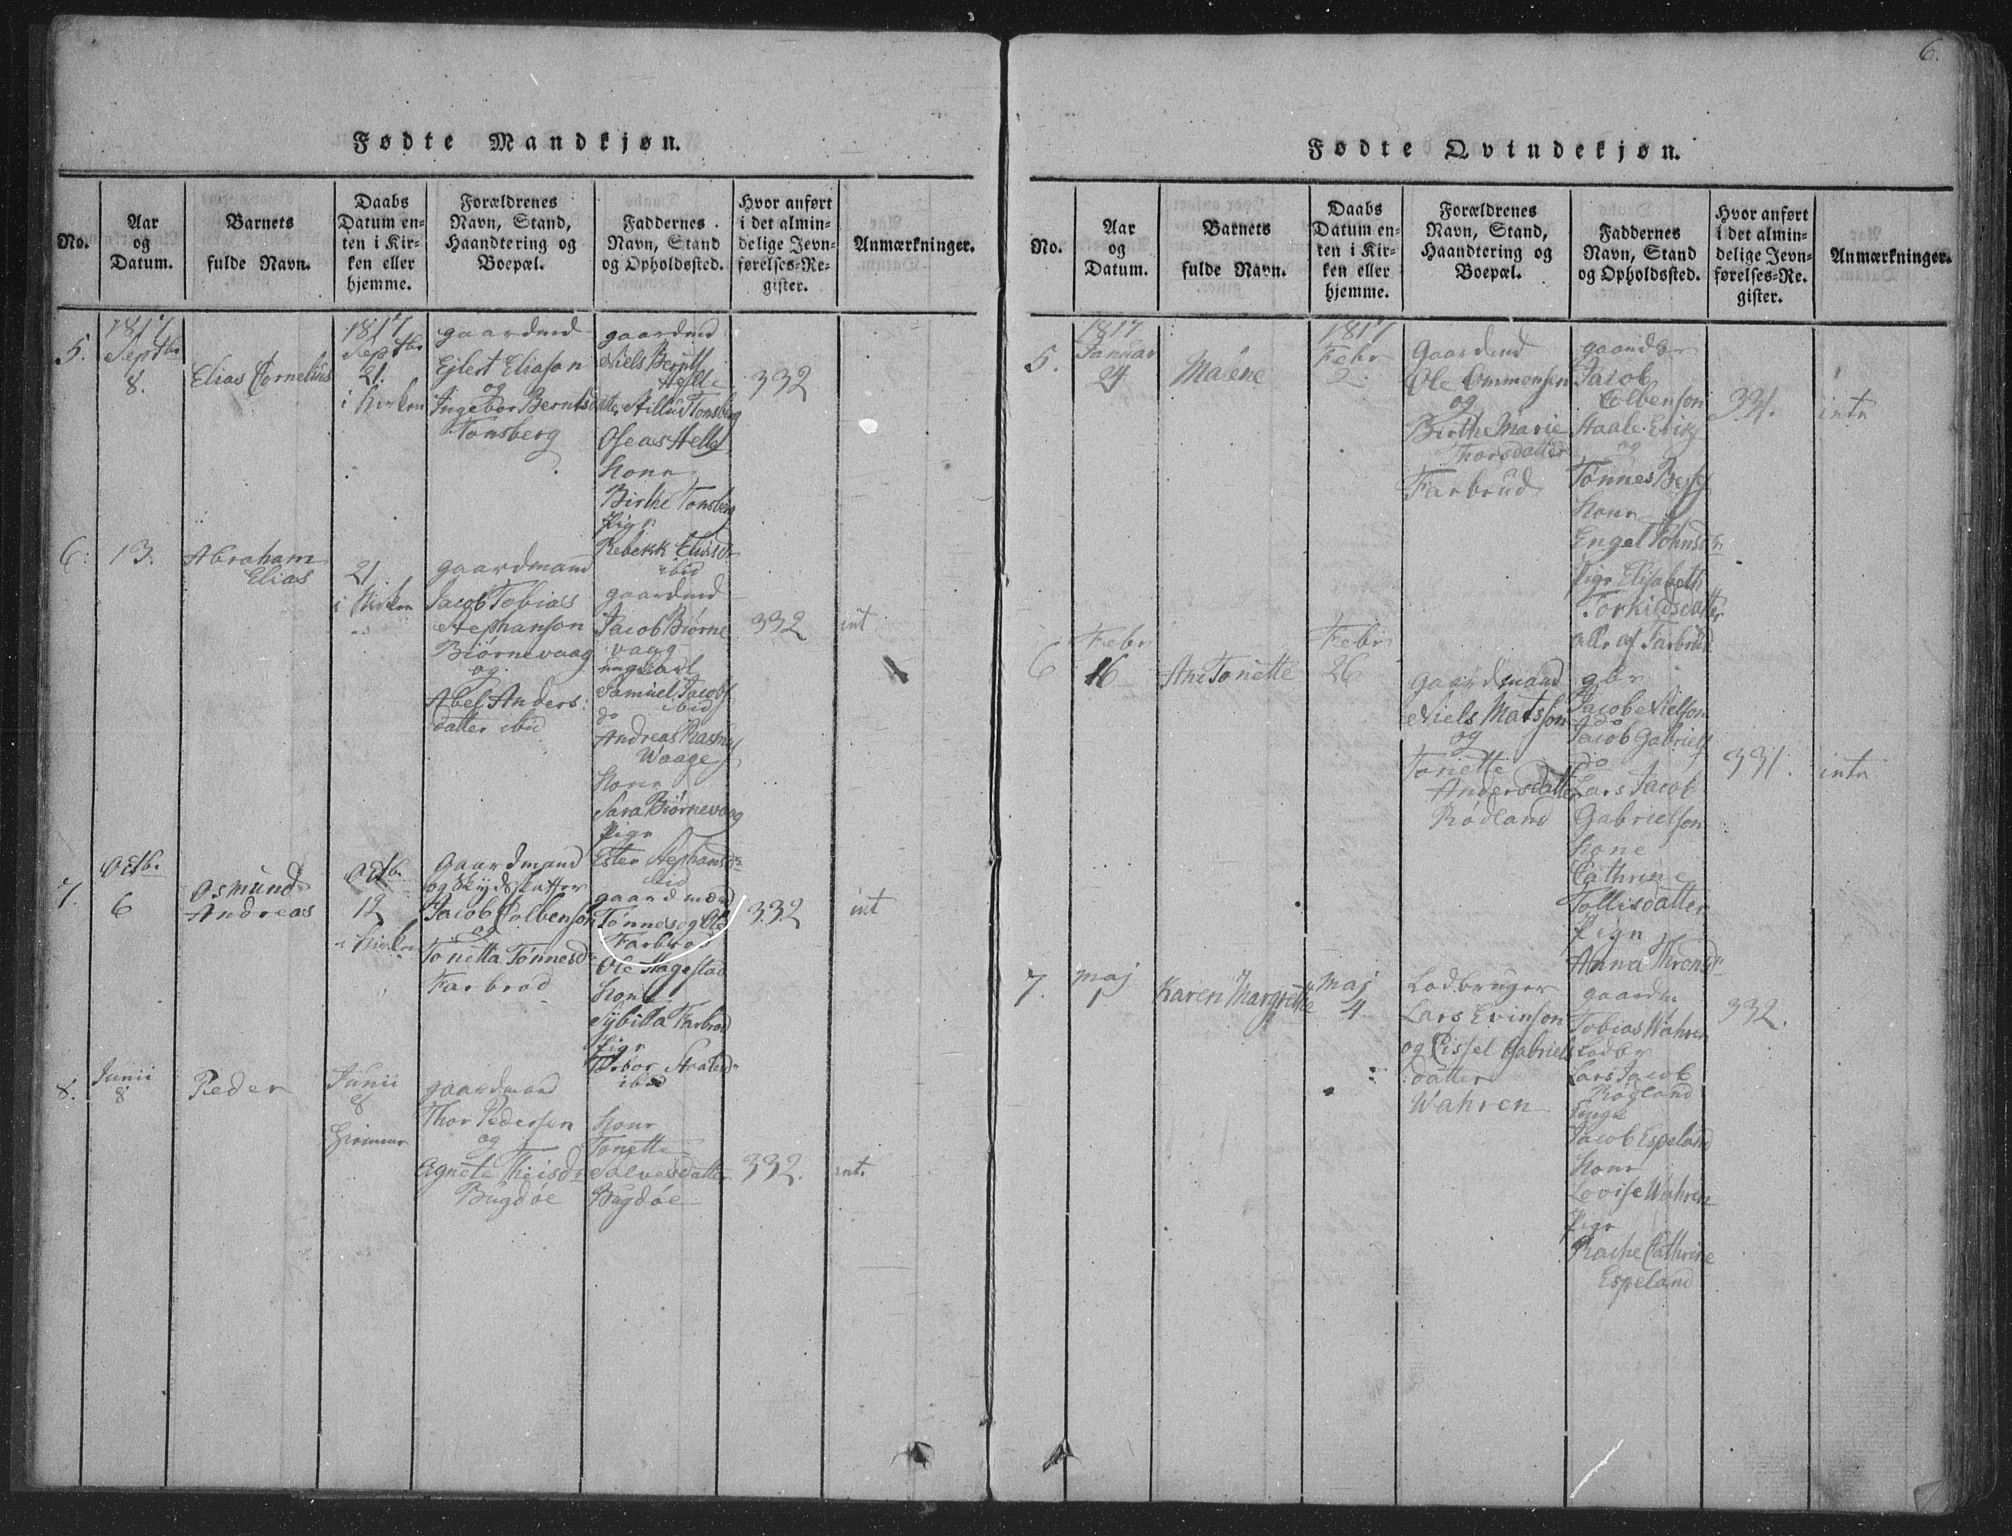 6.
Fødte Mandkjøn.
No.
Aar
og
Datum.
Barnets
fulde Navn.
Daabs
Datum en-
ten i Kir-
ken eller
hjemme.
Forældrenes
Navn, Stand,
Haandtering og
Boepæl.
Faddernes
Navn, Stand
og Opholdssted.
Hvor anført
i det almin-
delige Jevn-
førelses-Re-
gister.
Anmærkninger.
5.
1817
Septbr
8.
Elias Cornelius
1817
Septbr
21.
i Kirken
gaardmd
Ejlert Eliason
og
Ingebor Berntsdatter
Tonsberg
gaardmd
Niels Bernt
Helle
Tonsberg
Oseas Helle
Kone
Birthe Tonsberg
Pige
Rebekk
ibid
332
6.
13.
Abraham
Elias
21
i Kirken
gaardmand
Jacob Tobias
Stephanson
Biørnevaag
og
Abel Anders
datter ibid
gaardmd
Jacob Biørne
vaag
ungkarl
Samuel Jacobs
ibid
do
Andreas Rasmus
Waage
Kone
Sara Biørnevaag
Pige
Ester Stephansdr
ibid
332
int
7.
Octbr
6
Osmund
Andreas
Octbr
12
i Kirken
Gaardmand
og Skydskaffer
Jacob Colbenson
og
Tonetta Tønnesdr
Farbrod
gaardmænd
Tønnes og Ole
Farbro
Ole Hagestad
Kone
Sybilla Farbrod
Pige
Torbor Staalesdr
ibid
332
int
8.
Junii
8
Peder
Junii
8
Hiemme
gaardmand
Thor Pedersen
og
Agnete Theisdr
Bugdøe
Kone
Tonette
Salvesdatter
Bugdøe
332.
int.
Fødte Qvindekjøn.
No.
Aar
og
Datum.
Barnets
fulde Navn.
Daabs
Datum en-
ten i Kir-
ken eller
hjemme.
Forældrenes
Navn, Stand,
Haandtering og
Boepæl.
Faddernes
Navn, Stand
og Opholdssted.
Hvor anført
i det almin-
delige Jevn-
førelses-Re-
gister.
Anmærkninger.
5.
1817
Januar
24
Malene
1817
Febr
2.
Gaardmd
Ole Ommonsen
og
Birthe Marie
Thorsdatter
Farbrud
gaardbr
Jacob
Colbenson
Staale Erik
og
Tønnes Bess
Kone
Engel Johnsdr
Pige Elisabeth
Torkildsdatter
alle af Farbrud
331.
intr
6
Febr
16
Ane Tonette
Febr
26
gaardmand
Niels Matsson
og
Tonette
Andersdatter
Rødland
gbr
Jacob Nielson
do
Jacob Gabriels
do
Lars Jacob
Gabrielson
Kone
Cathrine
Tollisdatter
Pigen
Anna Thronsdr
331.
intr
7.
Maj
1
Karen Margrethe
Maj
4.
Lodbruger
Lars Evinson
og Cissel Gabriels
datter
Wahren
gaardm
Tobias Wahren
Lodbr
Lars Jacob
Røgland
Jacob Espeland
Kone
Lovise Wahren
Pige
Cathrine
Espeland
332.